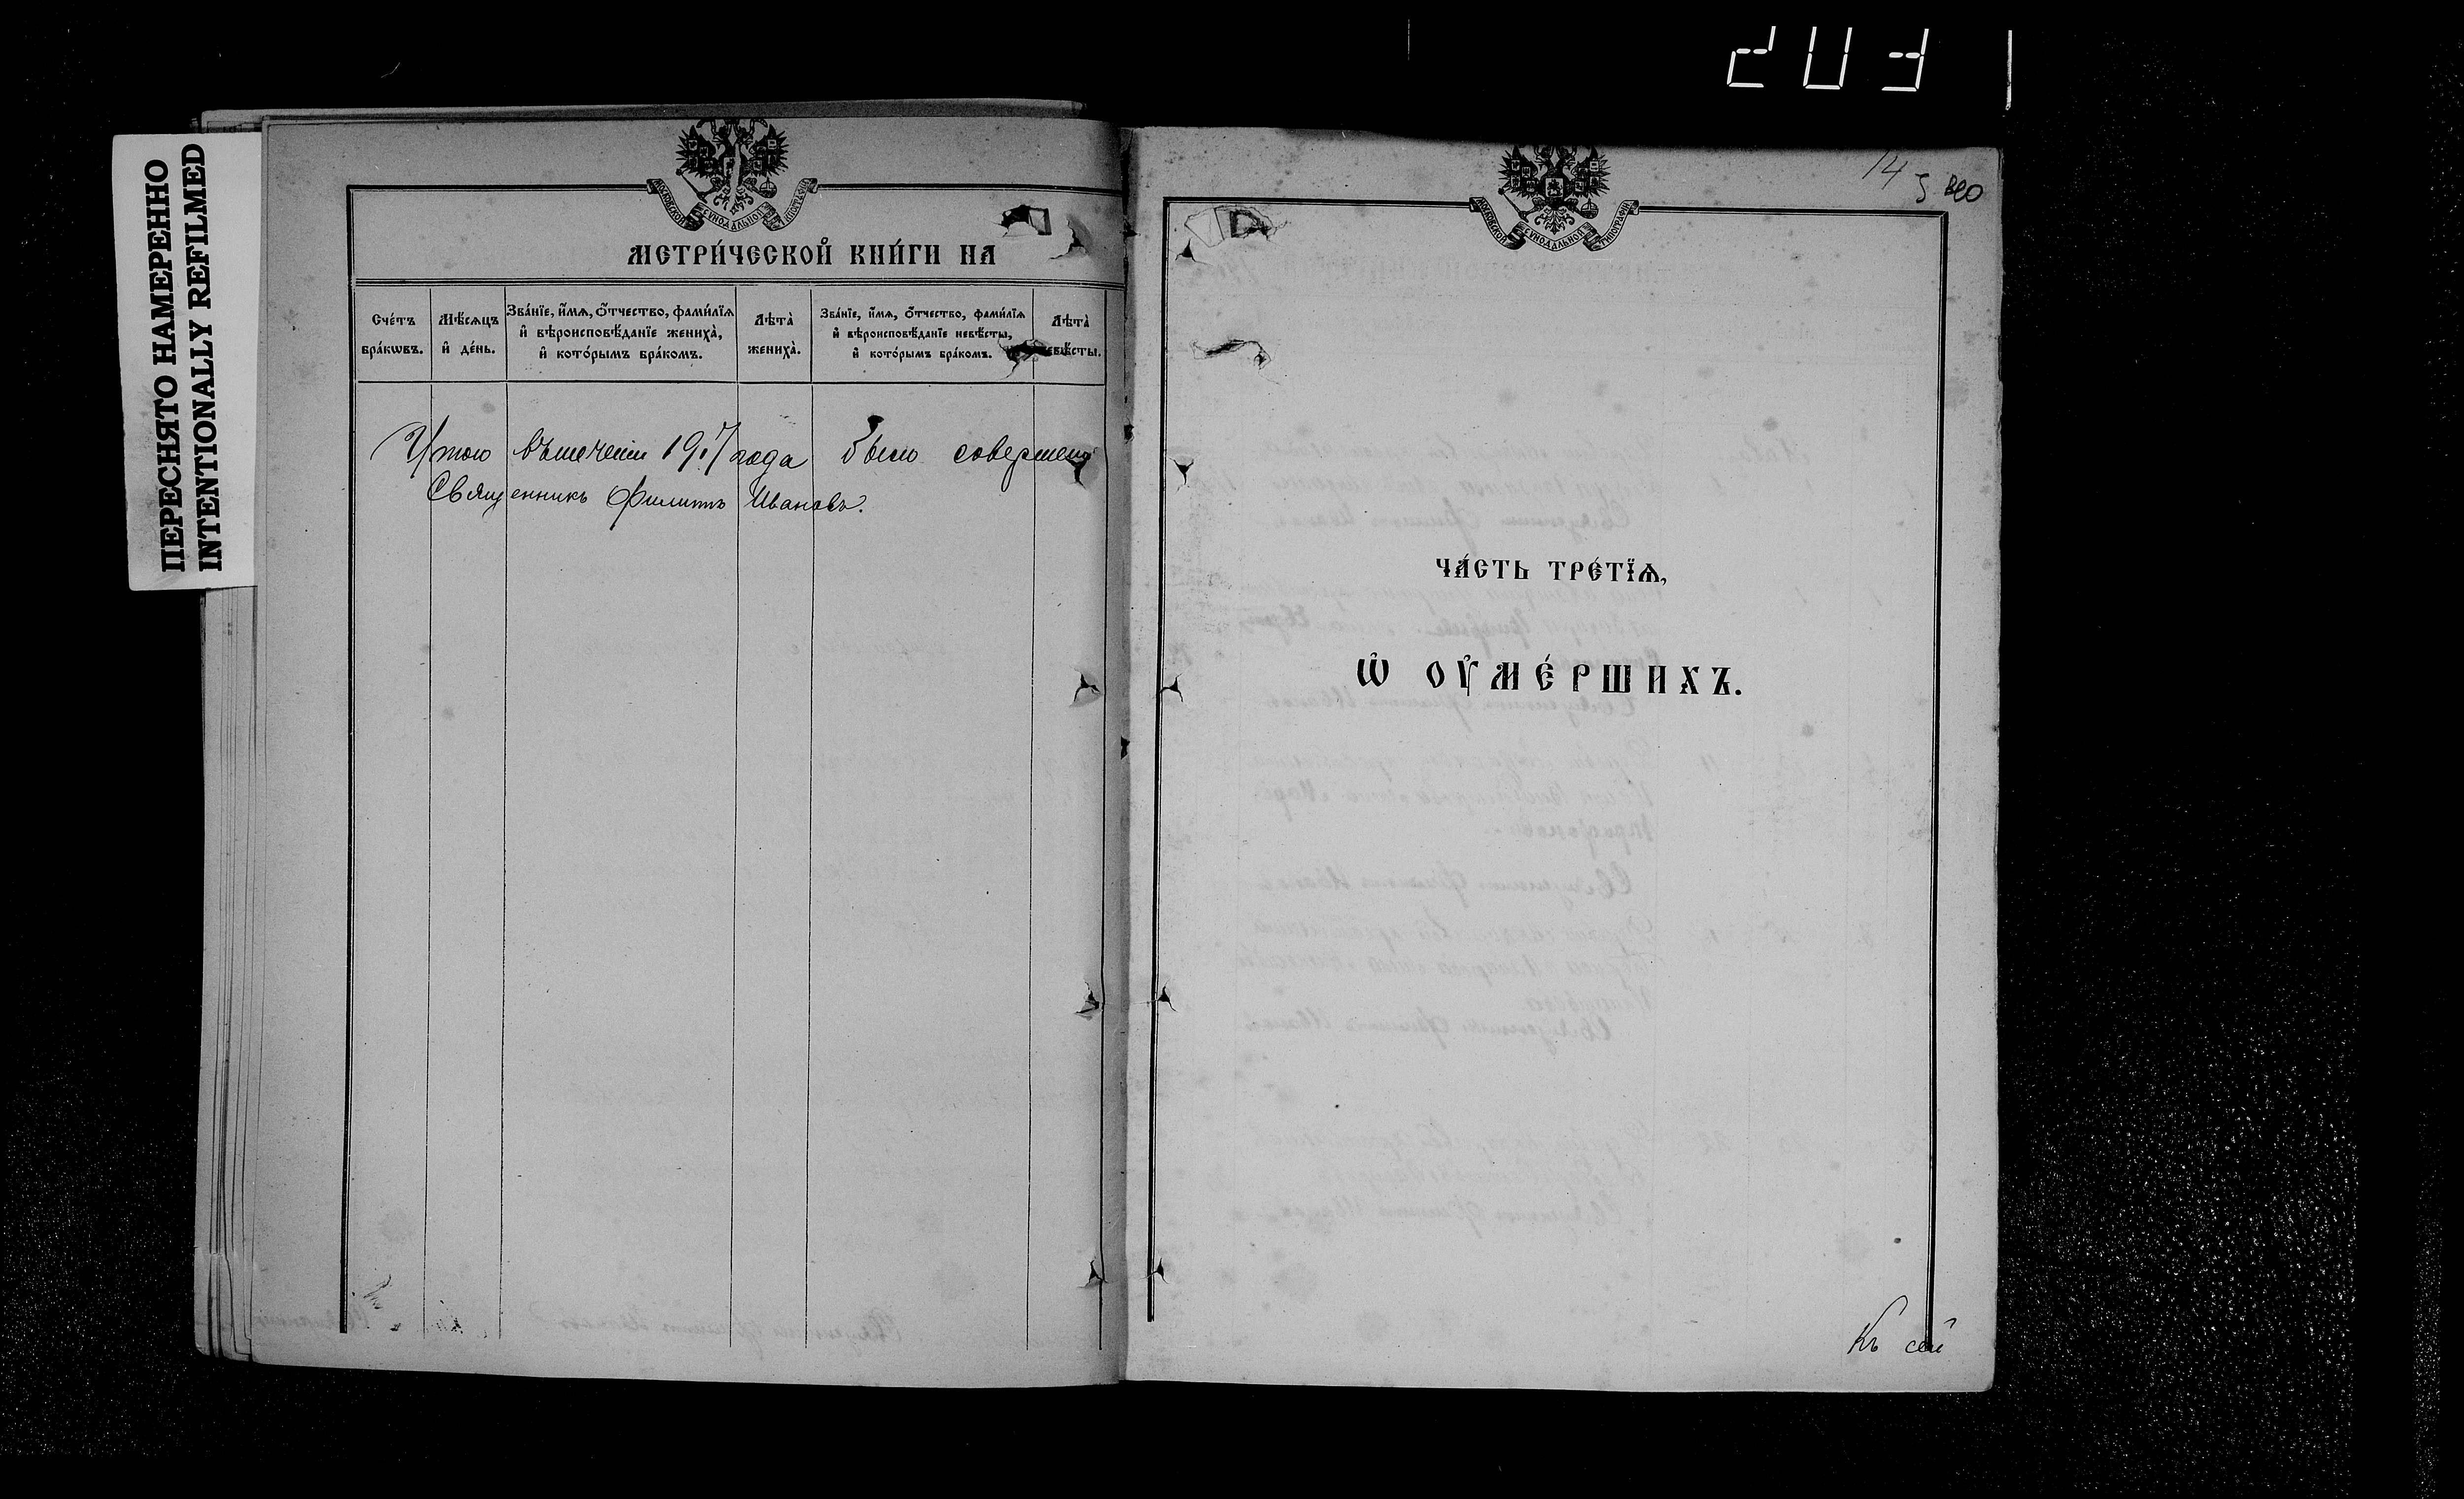 203
ПЕРЕСНЯТО НАМЕРЕННО
INTENTIONALLY REFILMED
МОСКОВСКОЙ СѴНОДАЛЬНОЙ ТИПОГРАФІИ
МЕТРИ́ЧЕСКОЙ КНИ́ГИ НА
Сче́тъ бра́кѡвъ.
Мѣ́сѧцъ и҆ де́нь.
Зва́нїе, и҆́мѧ, ѻ҆́тчество, фами́лїѧ и҆ вѣроисповѣ́данїе жениха̀, и҆ кото́рымъ бра́комъ.
Лѣта̀ жениха̀.
Зва́нїе, и҆́мѧ, ѻ҆́тчество, фами́лїѧ и҆ вѣроисповѣ́данїе невѣ́сты, и҆ кото́рымъ бра́комъ.
Лѣта̀ невѣ́сты.
Итого въ теченіи 1917 года было совершено
Священникъ Филиппъ Ивановъ.
14
МОСКОВСКОЙ СѴНОДАЛЬНОЙ ТИПОГРАФІИ
ЧА́СТЬ ТРЕ́ТЇѦ,
Ѡ҆ ОУ҆МЕ́РШИХЪ.
Къ сей